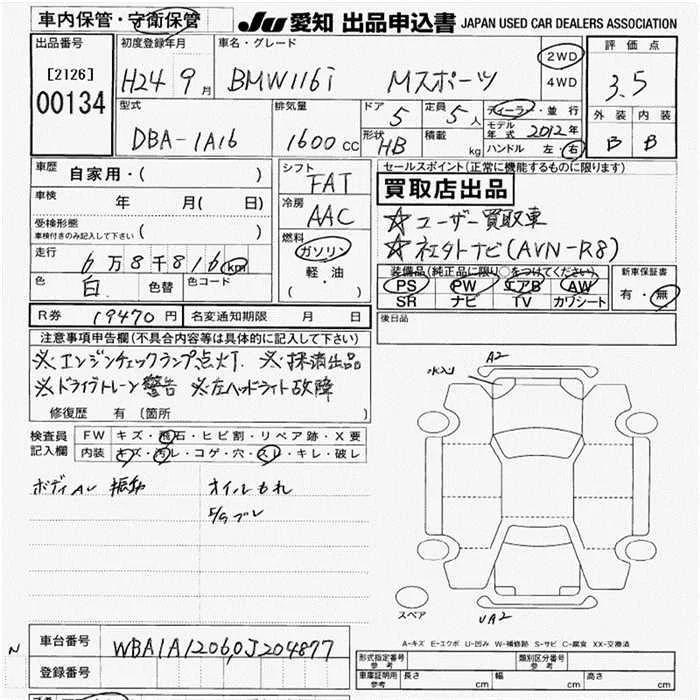 車内保管・守衛保管
JU 愛知 出品申込書 JAPAN USED CAR DEALERS ASSOCIATION
出品番号
[2126]
00134
初度登録年月
H24 9月
車名・グレード
BMW116i Mスポーツ
2WD
4WD
評価点
3.5
型式
DBA-1A16
排気量
1600cc
ドア
5
定員
5人
形状
HB
積載
kg
ディーラー・並行
モデル年式 2012年
ハンドル 左・右
外装 内装
B B
車歴
自家用・( )
車検
年 月( 日)
受検形態
車検付きのみ記入して下さい ( )
走行
6万8千816km
色
白
色替
色コード
シフト
FAT
冷房
AAC
燃料
ガソリン
軽・油
( )
セールスポイント(正常に機能するものに限ります)
買取店出品
☆ユーザー買取車
☆社外ナビ(AVN-R8)
装備品(純正品に限り○をつけてください)
PS PW エアB AW
SR ナビ TV カワシート
新車保証書
有・無
R券 19470円
名変通知期限 月 日
後日品
注意事項申告欄(不具合内容等は具体的に記入して下さい)
※エンジンチェックランプ点灯 ※保留出品
※ドライブトレーン警告 ※左ヘッドライト故障
修復歴 有 (箇所 )
検査員記入欄
FW キズ・飛石・ヒビ割・リペア跡・X要
内装 キズ・汚レ・コゲ・穴・スレ・キレ・破レ
ボディAU 振動 オイルもれ
水入り
A2
スペア
UA2
A-キズ E-エクボ U-凹み W-補修跡 S-サビ C-腐食 XX-交換済
N
車台番号 WBA1A12060J204877
登録番号
形式指定番号 参考
類別区分番号 参考
車庫証明用 参考
長さ cm 幅 cm 高さ cm